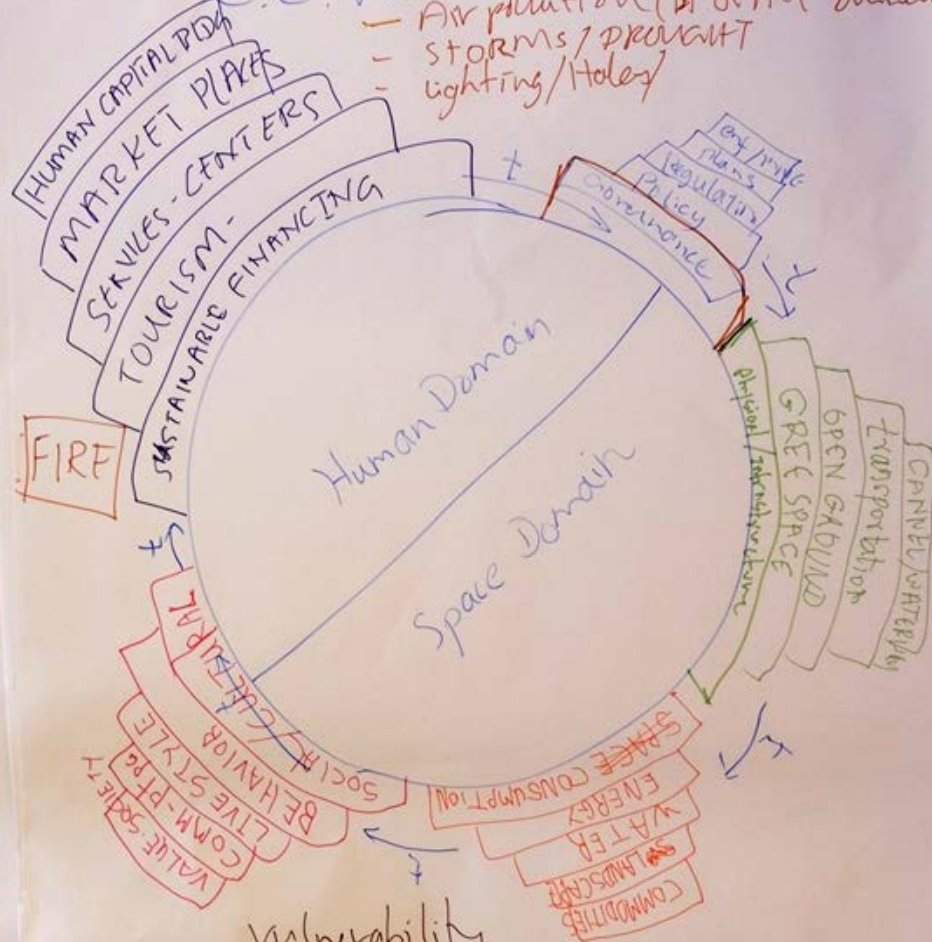 - Air pollution
- STORMS / DROUGHT
- Lighting/Holes/
HUMAN CAPITAL BLDG
MARKET PLACES
SERVICES-CENTERS
TOURISM-
SUSTAINABLE FINANCING
t
plans
Regulation
Policy
Governance
t
FIRE
Human Domain
Space Domain
physical/infrastructure
GREE SPACE
OPEN GROUND
transportation
t
CONSUMPTION
ENERGY
WATER
LANDSCAPE
COMMODITIES
t
SOCIAL/CULTURAL
BEHAVIOR
LIVE STYLE
VALUE SOCIETY
t
Vulnerability